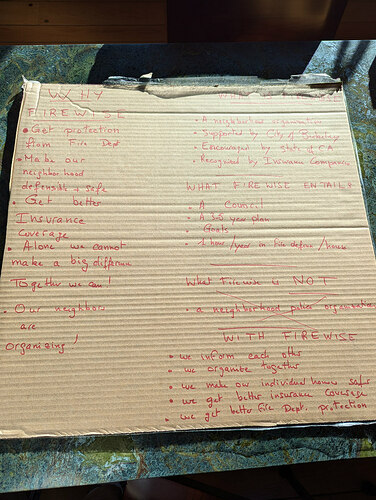 WHY
FIREWISE
• Get protection
from Fire Dept.
• Make our
neighborhood
defensible & safe
• Get better
Insurance
coverage
• Alone we cannot
make a big difference
Together we can!
• Our neighbors
are
organizing!
WHAT IS FIREWISE
• A neighborhood organization
• Supported by City of Berkeley
• Encouraged by State of CA
• Recognized by Insurance Companies
WHAT FIREWISE ENTAILS
• A Council
• A 3-5 year plan
• Goals
• 1 hour/year in fire defense/house
What Firewise is NOT
• a neighborhood police organization
WITH FIREWISE
• we inform each other
• we organize together
• we make our individual homes safer
• we get better insurance coverage
• we get better Fire Dept. protection